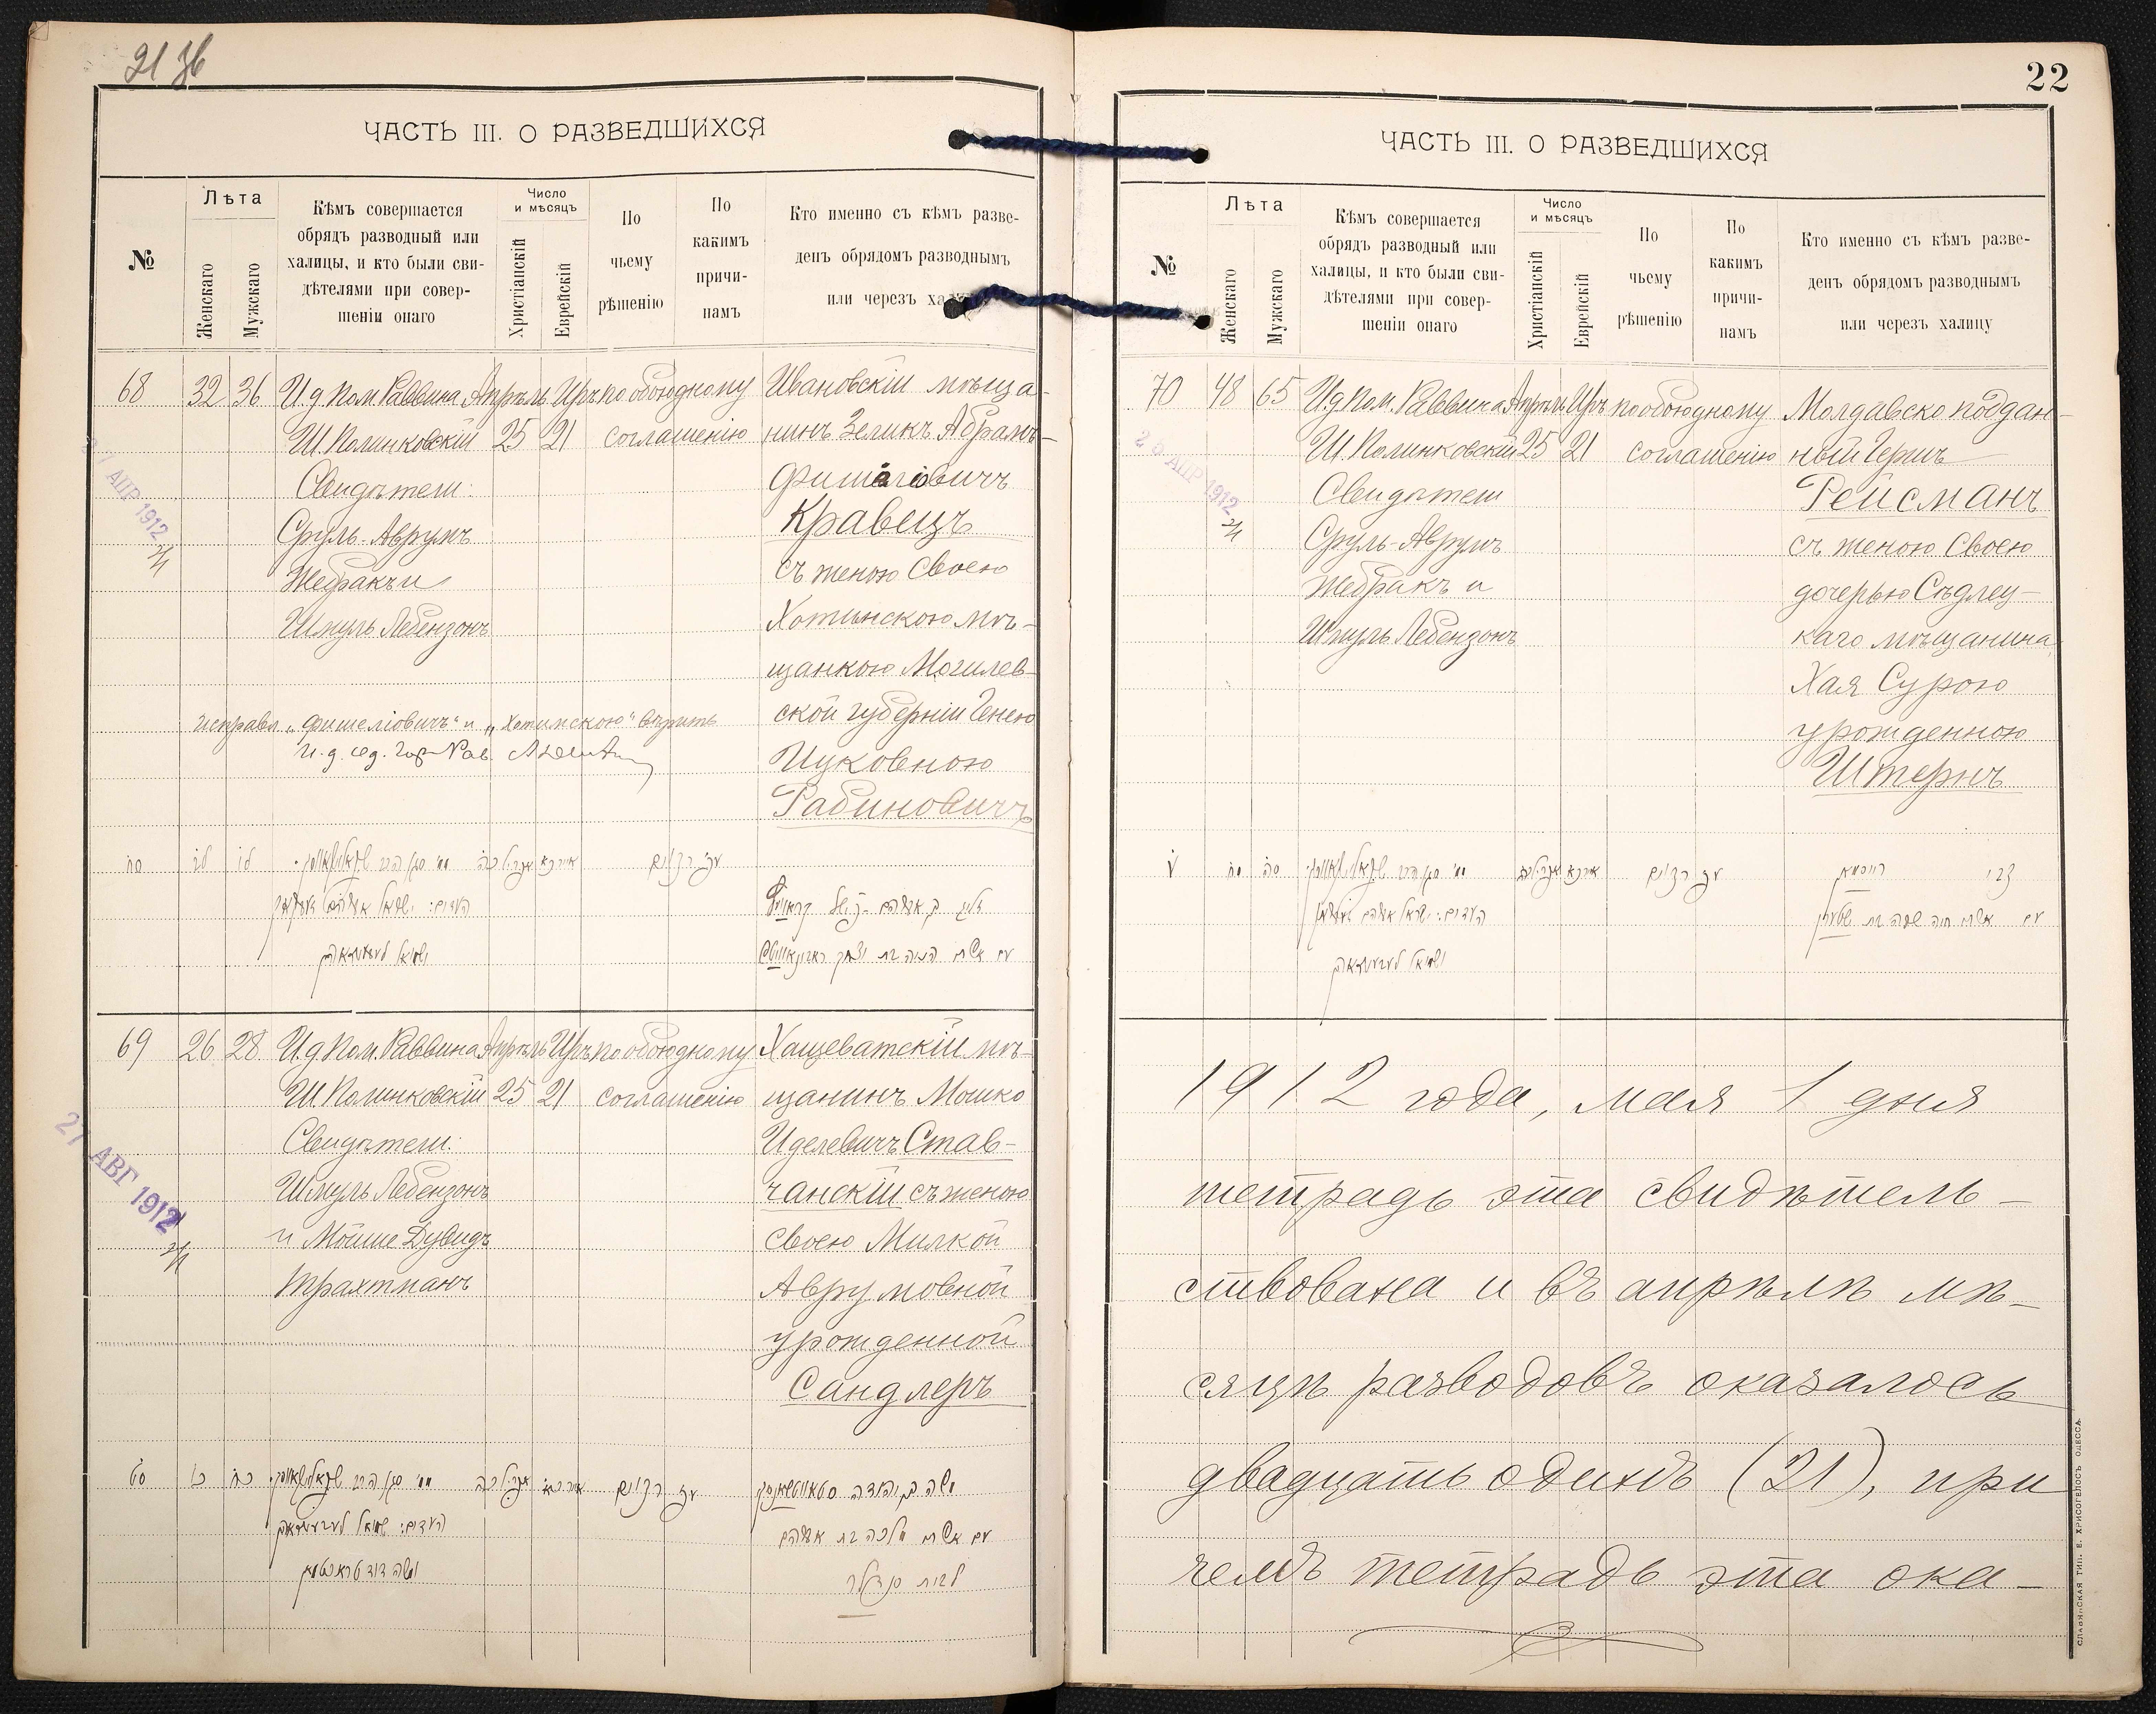 21 зв
ЧАСТЬ III. О РАЗВЕДШИХСЯ
№
Лѣта
Женскаго
Мужскаго
Кѣмъ совершается
обрядъ разводный или
халицы, и кто были сви-
дѣтелями при совер-
шеніи онаго
Число
и мѣсяцъ
Христіанскій
Еврейскій
По
чьему
рѣшенію
По
какимъ
причи-
намъ
Кто именно съ кѣмъ разве-
денъ обрядомъ разводнымъ
или черезъ
68 32 36
И.д. Пом. Раввина
Ш. Полинковскій
Свидѣтели:
Сруль-Аврумъ
Жебракъ и
Шмуль Лебензонъ
Апрѣль
25
Иръ
21
по обоюдному
соглашенію
Ивановскій мѣща-
нинъ Зеликъ Абрамъ-
Фишеліовичъ
Кравецъ
съ женою своею
Хотимскою мѣ-
щанкою Могилев-
ской губерніи Генею
Ицковною
Рабиновичъ
АПР 1912
исправл. „Фишеліовичъ" и „Хотимскою" вѣрить
סח לב לו
העדים: ישראל אברהם
שמואל
אייר כא
אפריל כה
69 26 28
И.д. Пом. Раввина
Ш. Полинковскій
Свидѣтели:
Шмуль Лебензонъ
и Мойше Дувидъ
Трахтманъ
Апрѣль
25
Иръ
21
по обоюдному
соглашенію
Хащеватскій мѣ-
щанинъ Мошко
Иделевичъ Став-
чанскій съ женою
своею Милкой
Аврумовной
урожденной
Сандлеръ
27 АВГ 1912
סט כו כח
העדים: שמואל
ומשה דוד טראכטמאן
משה בן יהודה סטאווטשאנסקי
עם אשתו מלכה בת אברהם
לבית סנדלר
22
ЧАСТЬ III. О РАЗВЕДШИХСЯ
№
Лѣта
Женскаго
Мужскаго
Кѣмъ совершается
обрядъ разводный или
халицы, и кто были сви-
дѣтелями при совер-
шеніи онаго
Число
и мѣсяцъ
Христіанскій
Еврейскій
По
чьему
рѣшенію
По
какимъ
причи-
намъ
Кто именно съ кѣмъ разве-
денъ обрядомъ разводнымъ
или черезъ халицу
70 48 65
И.д. Пом. Раввина
Ш. Полинковскій
Свидѣтели
Сруль-Аврумъ
Жебракъ и
Шмуль Лебензонъ
Апрѣль
25
Иръ
21
по обоюдному
соглашенію
Молдавско поддан-
ный Гершъ
Рейсманъ
съ женою своею
дочерью Сѣдлец-
каго мѣщанина
Хая Сурою
урожденною
Штернъ
АПР 1912
ע מח סה
העדים: ישראל אברהם
צבי רייסמאן
עם אשתו חיה שרה בת שטערן
1912 года, мая 1 дня
тетрадь эта свидѣтель-
ствована и въ апрѣлѣ мѣ-
сяцѣ разводовъ оказалось
двадцать одинъ (21), при
чемъ тетрадь эта ока-
СЛАВЯНСКАЯ ТИП. Е. ХРИСОГЕЛОСЪ ОДЕССА.